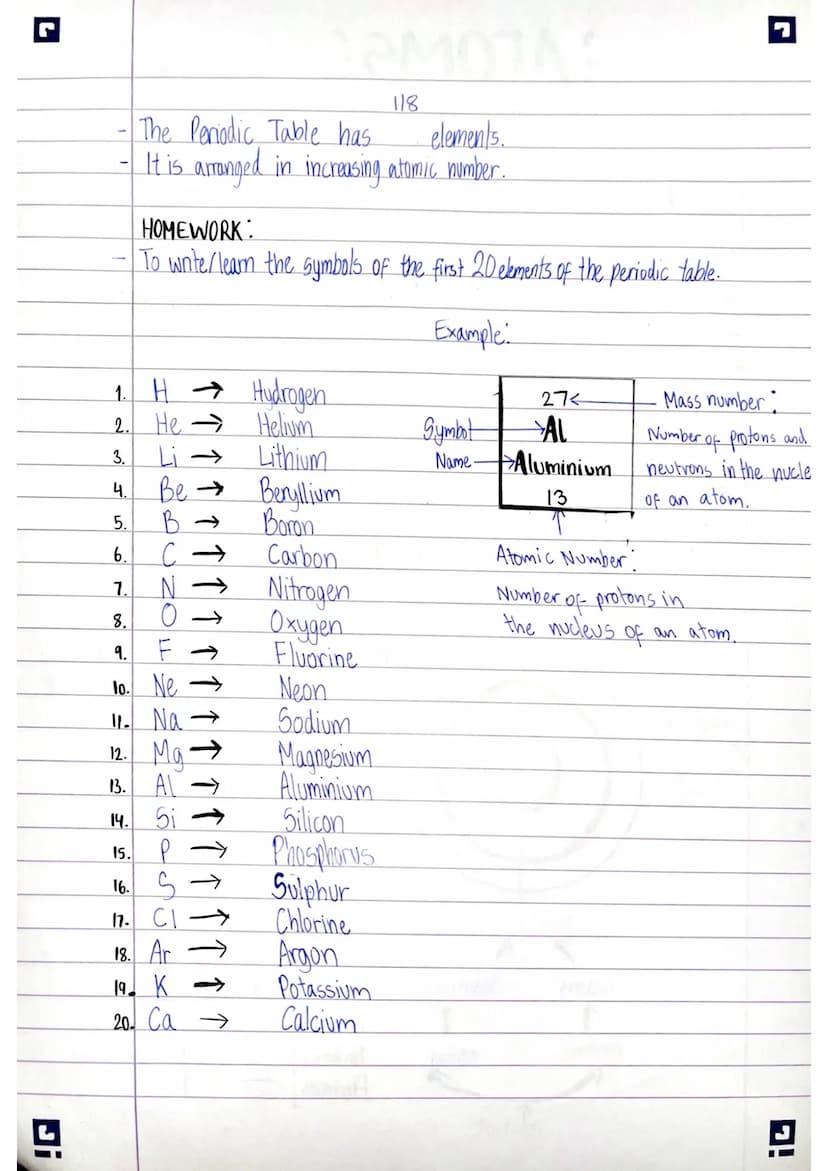 118
- The Periodic Table has elements.
- It is arranged in increasing atomic number.
HOMEWORK:
- To write/learn the symbols of the first 20 elements of the periodic table.
Example:
1. H → Hydrogen
2. He → Helium
3. Li → Lithium
4. Be → Beryllium
5. B → Boron
6. C → Carbon
7. N → Nitrogen
8. O → Oxygen
9. F → Fluorine
10. Ne → Neon
11. Na → Sodium
12. Mg → Magnesium
13. Al → Aluminium
14. Si → Silicon
15. P → Phosphorus
16. S → Sulphur
17. Cl → Chlorine
18. Ar → Argon
19. K → Potassium
20. Ca → Calcium
27 ← Mass number:
Symbol → Al
Name → Aluminium
13
Number of protons and
neutrons in the nucle
of an atom.
↑
Atomic Number:
Number of protons in
the nucleus of an atom.